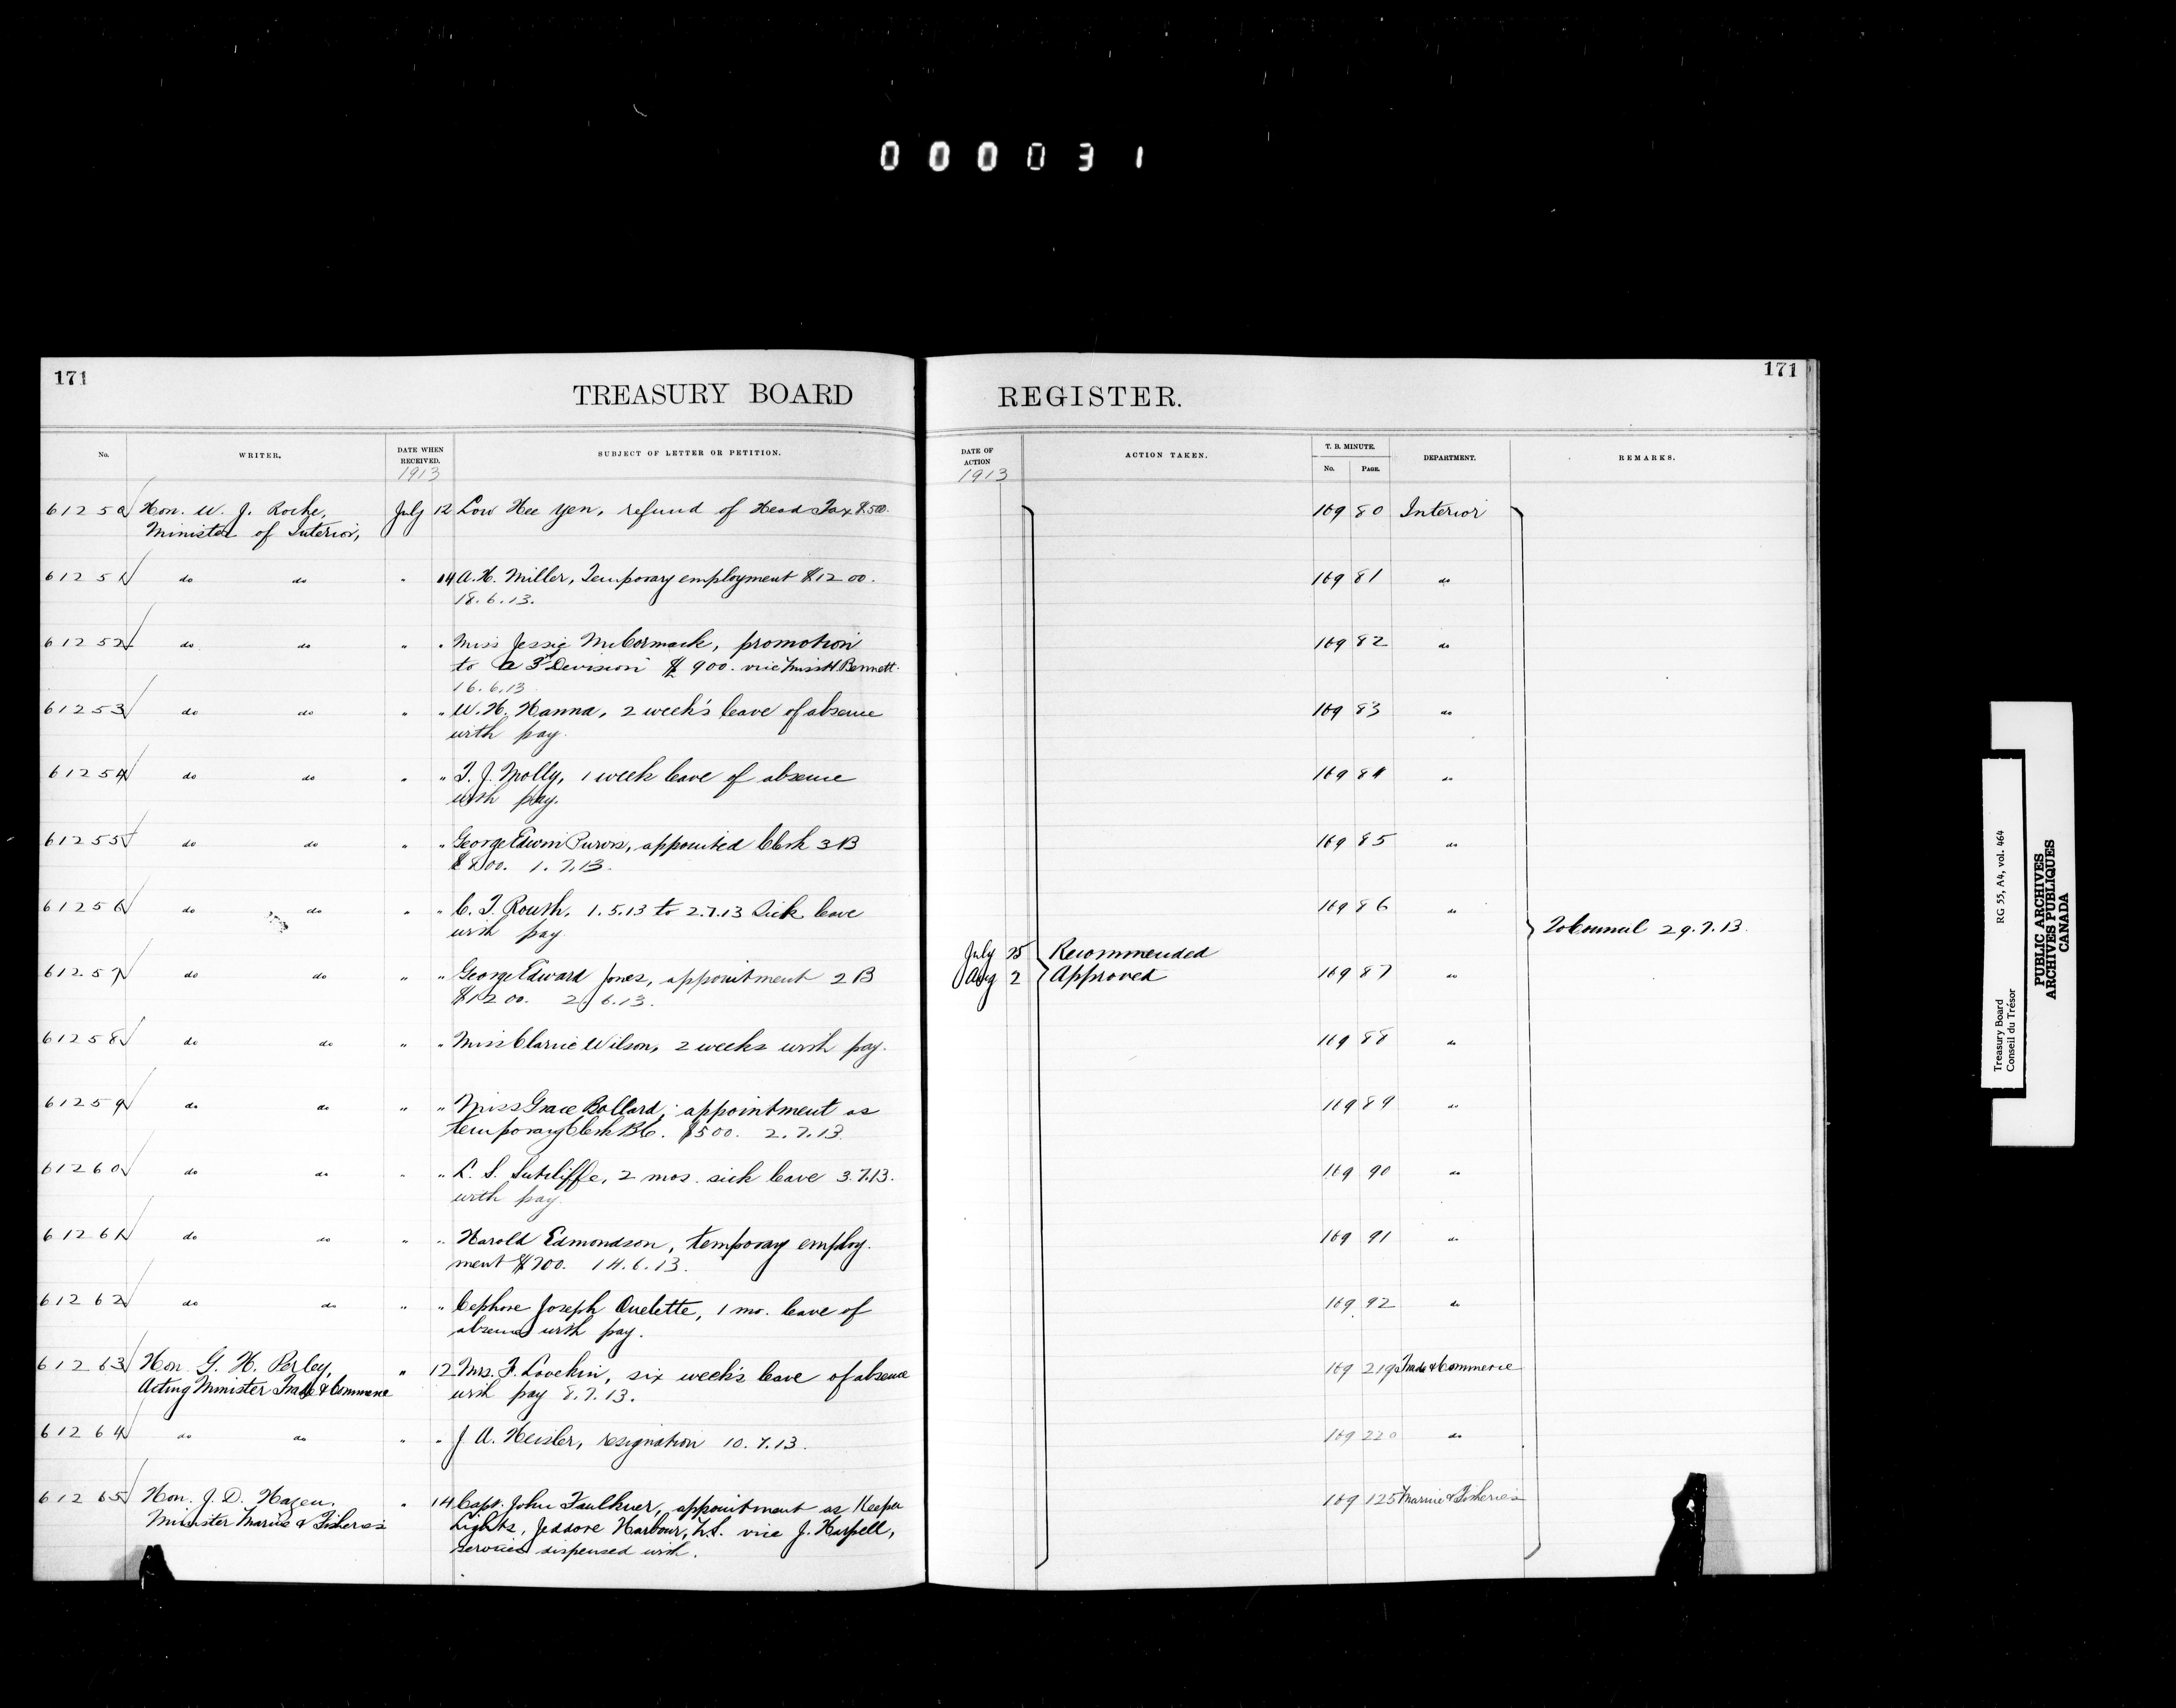 000031
171
TREASURY BOARD REGISTER.
171
No. WRITER. DATE WHEN RECEIVED. SUBJECT OF LETTER OR PETITION. DATE OF ACTION ACTION TAKEN. T. B. MINUTE. No. PAGE. DEPARTMENT. REMARKS.
1913 1913
61250 Hon. W. J. Roche, July 12 Low Hee Yen, refund of Head Tax $500. 169 80 Interior
Minister of Interior,
61251 do do " 14 A. H. Miller, Temporary employment $1200. 169 81 do
18.6.13.
61252 do do " " Miss Jessie McCormack, promotion 169 82 do
to a 3rd Division $900. vice Miss H. Bennett.
16.6.13
61253 do do " " W. H. Hanna, 2 week's leave of absence 169 83 do
with pay.
61254 do do " " T. J. Molly, 1 week leave of absence 169 84 do
with pay.
61255 do do " " George Edwin Purvis, appointed Clerk 3 B 169 85 do
$800. 1.7.13.
61256 do do " " C. T. Routh, 1.5.13 to 2.7.13 Sick leave 169 86 do
with pay.
To Council 29.7.13.
July 25 Recommended
61257 do do " " George Edward Jones, appointment 2 B Aug 2 Approved 169 87 do
$1200. 2.6.13.
61258 do do " " Miss Clarrie Wilson, 2 weeks with pay. 169 88 do
61259 do do " " Miss Grace Bollard, appointment as 169 89 do
temporary Clerk $500. 2.7.13.
61260 do do " " L. S. Sutcliffe, 2 mos. sick leave 3.7.13. 169 90 do
with pay.
61261 do do " " Harold Edmondson, temporary employ- 169 91 do
ment $700. 14.6.13.
61262 do do " " Cephore Joseph Ouelette, 1 mo. leave of 169 92 do
absence with pay.
61263 Hon. G. H. Perley, " 12 Mrs. F. Lovekin, six week's leave of absence 169 219 Trade & Commerce
Acting Minister Trade & Commerce with pay 8.7.13.
61264 do do " " J. A. Heisler, resignation 10.7.13. 169 220 do
61265 Hon. J. D. Hazen, " 14 Capt. John Faulkner, appointment as Keeper 169 125 Marine & Fisheries
Minister Marine & Fisheries Lights, Jeddore Harbour, N.S. vice J. Harpell,
services dispensed with.
Treasury Board RG 55, A4, vol. 464
Conseil du Trésor
PUBLIC ARCHIVES
ARCHIVES PUBLIQUES
CANADA